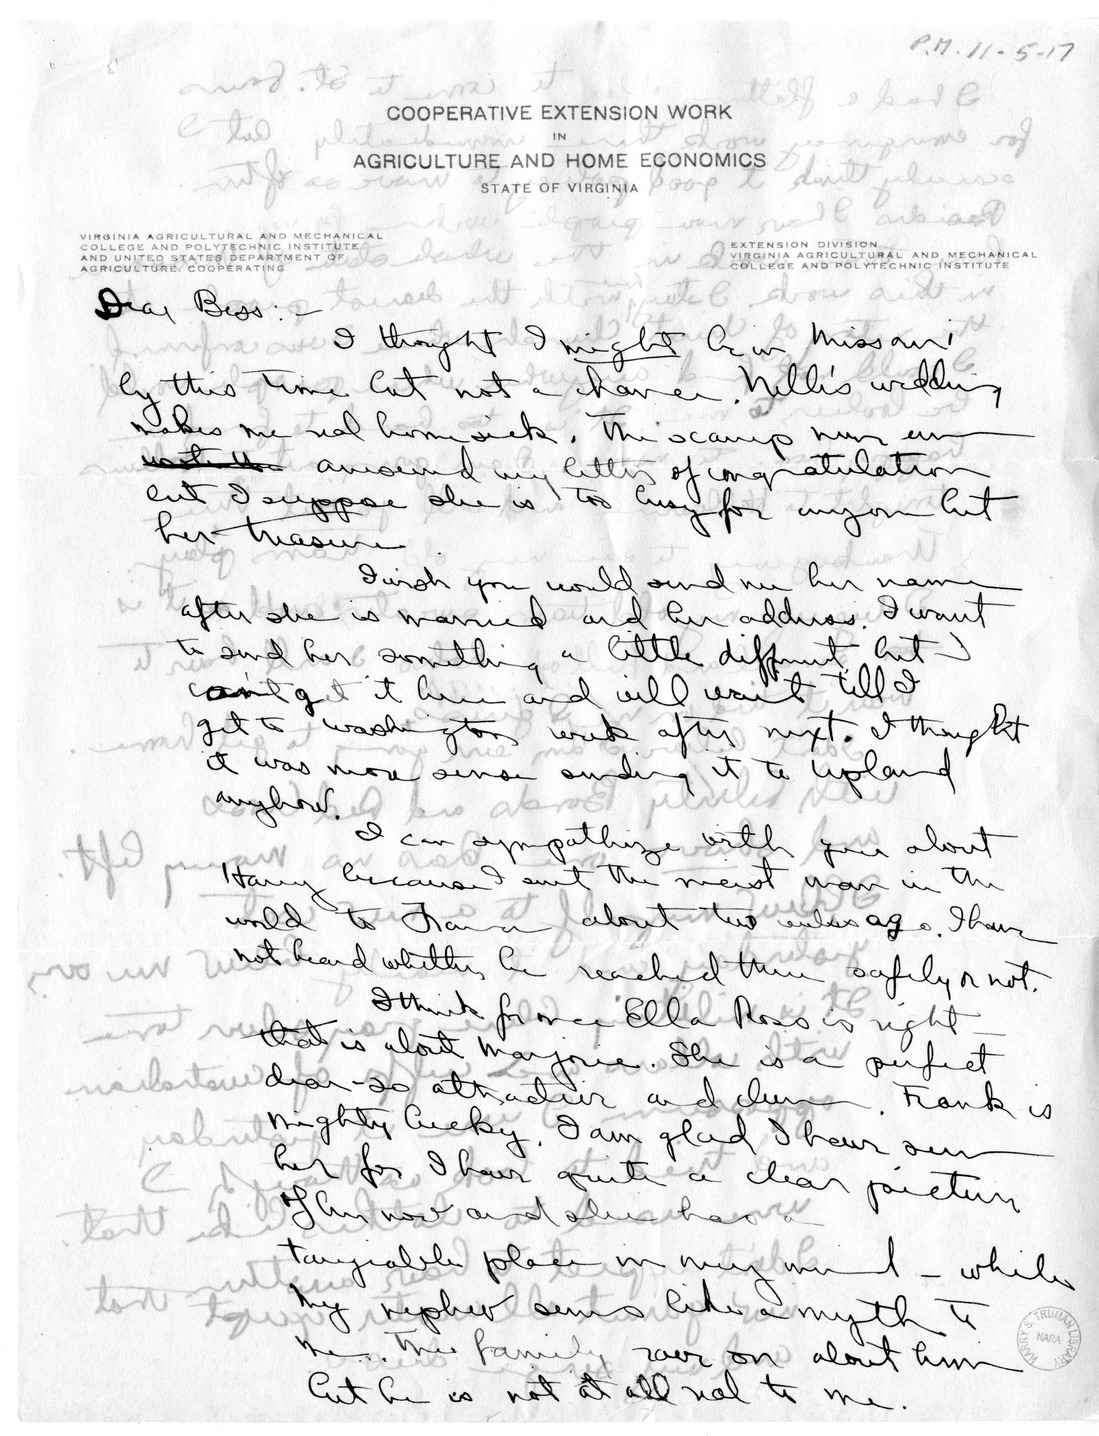 P.M. 11-5-17
COOPERATIVE EXTENSION WORK
IN
AGRICULTURE AND HOME ECONOMICS
STATE OF VIRGINIA
VIRGINIA AGRICULTURAL AND MECHANICAL
COLLEGE AND POLYTECHNIC INSTITUTE
AND UNITED STATES DEPARTMENT OF
AGRICULTURE, COOPERATING
EXTENSION DIVISION
VIRGINIA AGRICULTURAL AND MECHANICAL
COLLEGE AND POLYTECHNIC INSTITUTE
Dear Bess:-
I thought I might be in Missouri
by this time but not a chance. Nelle's wedding
makes me real homesick. The scamp never even
answered my letter of congratulation
but I suppose she is too busy for anyone but
her treasure.
I wish you would send me her name
after she is married and her address. I want
to send her something a little different but I
can't get it here and will wait till I
get to Washington week after next. I thought
it was more sense sending it to Upland
anyhow.
I can sympathize with you about
Harry because I sent the nicest man in the
world to France about two weeks ago. I have
not heard whether he reached there safely or not.
I think for once Ella Ross is right -
that is about Marjorie. She is a perfect
dear - so attractive and clever. Frank is
mighty lucky. I am glad I have seen
her for I have quite a clear picture
of her now and she has a
tangiable place in my mind - while
my nephew seems like a myth to
me. The family rave on about him
but he is not at all real to me.
HARRY S. TRUMAN LIBRARY
NARA